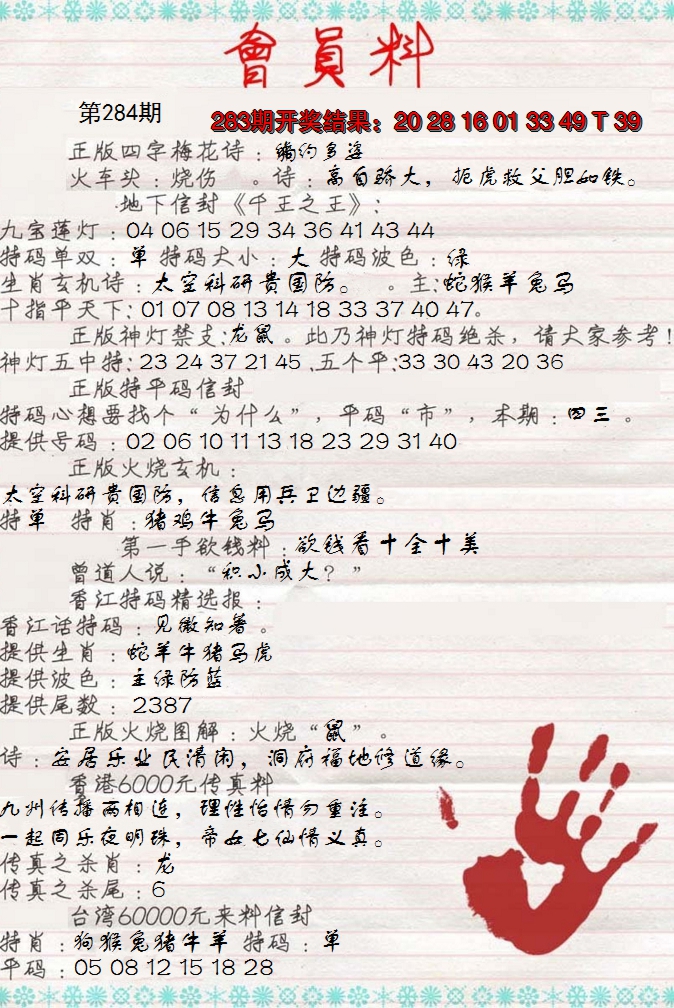 會員料
第284期
283期开奖结果：20 28 16 01 33 49 T 39
正版四字梅花诗：绰约多姿
火车头：烧伤 。诗：高自骄大，扼虎救父胆如铁。
地下信封《千王之王》：
九宝莲灯：04 06 15 29 34 36 41 43 44
特码单双：单 特码大小：大 特码波色：绿
生肖玄机诗：太空科研貴国防。 。主：蛇猴羊兔马
十指平天下：01 07 08 13 14 18 33 37 40 47。
正版神灯禁支：龙鼠。此乃神灯特码绝杀，请大家参考！
神灯五中特：23 24 37 21 45 .五个平：33 30 43 20 36
正版特平码信封
特码心想要找个“为什么”，平码“市”，本期：四三 。
提供号码：02 06 10 11 13 18 23 29 31 40
正版火烧玄机：
太空科研貴国防，信息用兵卫边疆。
特单 特肖：猪鸡牛兔马
第一手欲钱料：欲钱看十全十美
曾道人说：“积小成大？”
香江特码精选报：
香江话特码：见微知著。
提供生肖：蛇羊牛猪马虎
提供波色：主绿防蓝
提供尾数：2387
正版火烧图解：火烧“鼠”。
诗：安居乐业民清闲，洞府福地修道缘。
香港6000元传真料
九州传播两相连，理性怡情勿重注。
一起同乐夜明珠，帝女七仙情义真。
传真之杀肖：龙
传真之杀尾：6
台湾60000元来料信封
特肖：狗猴兔猪牛羊 特码：单
平码：05 08 12 15 18 28